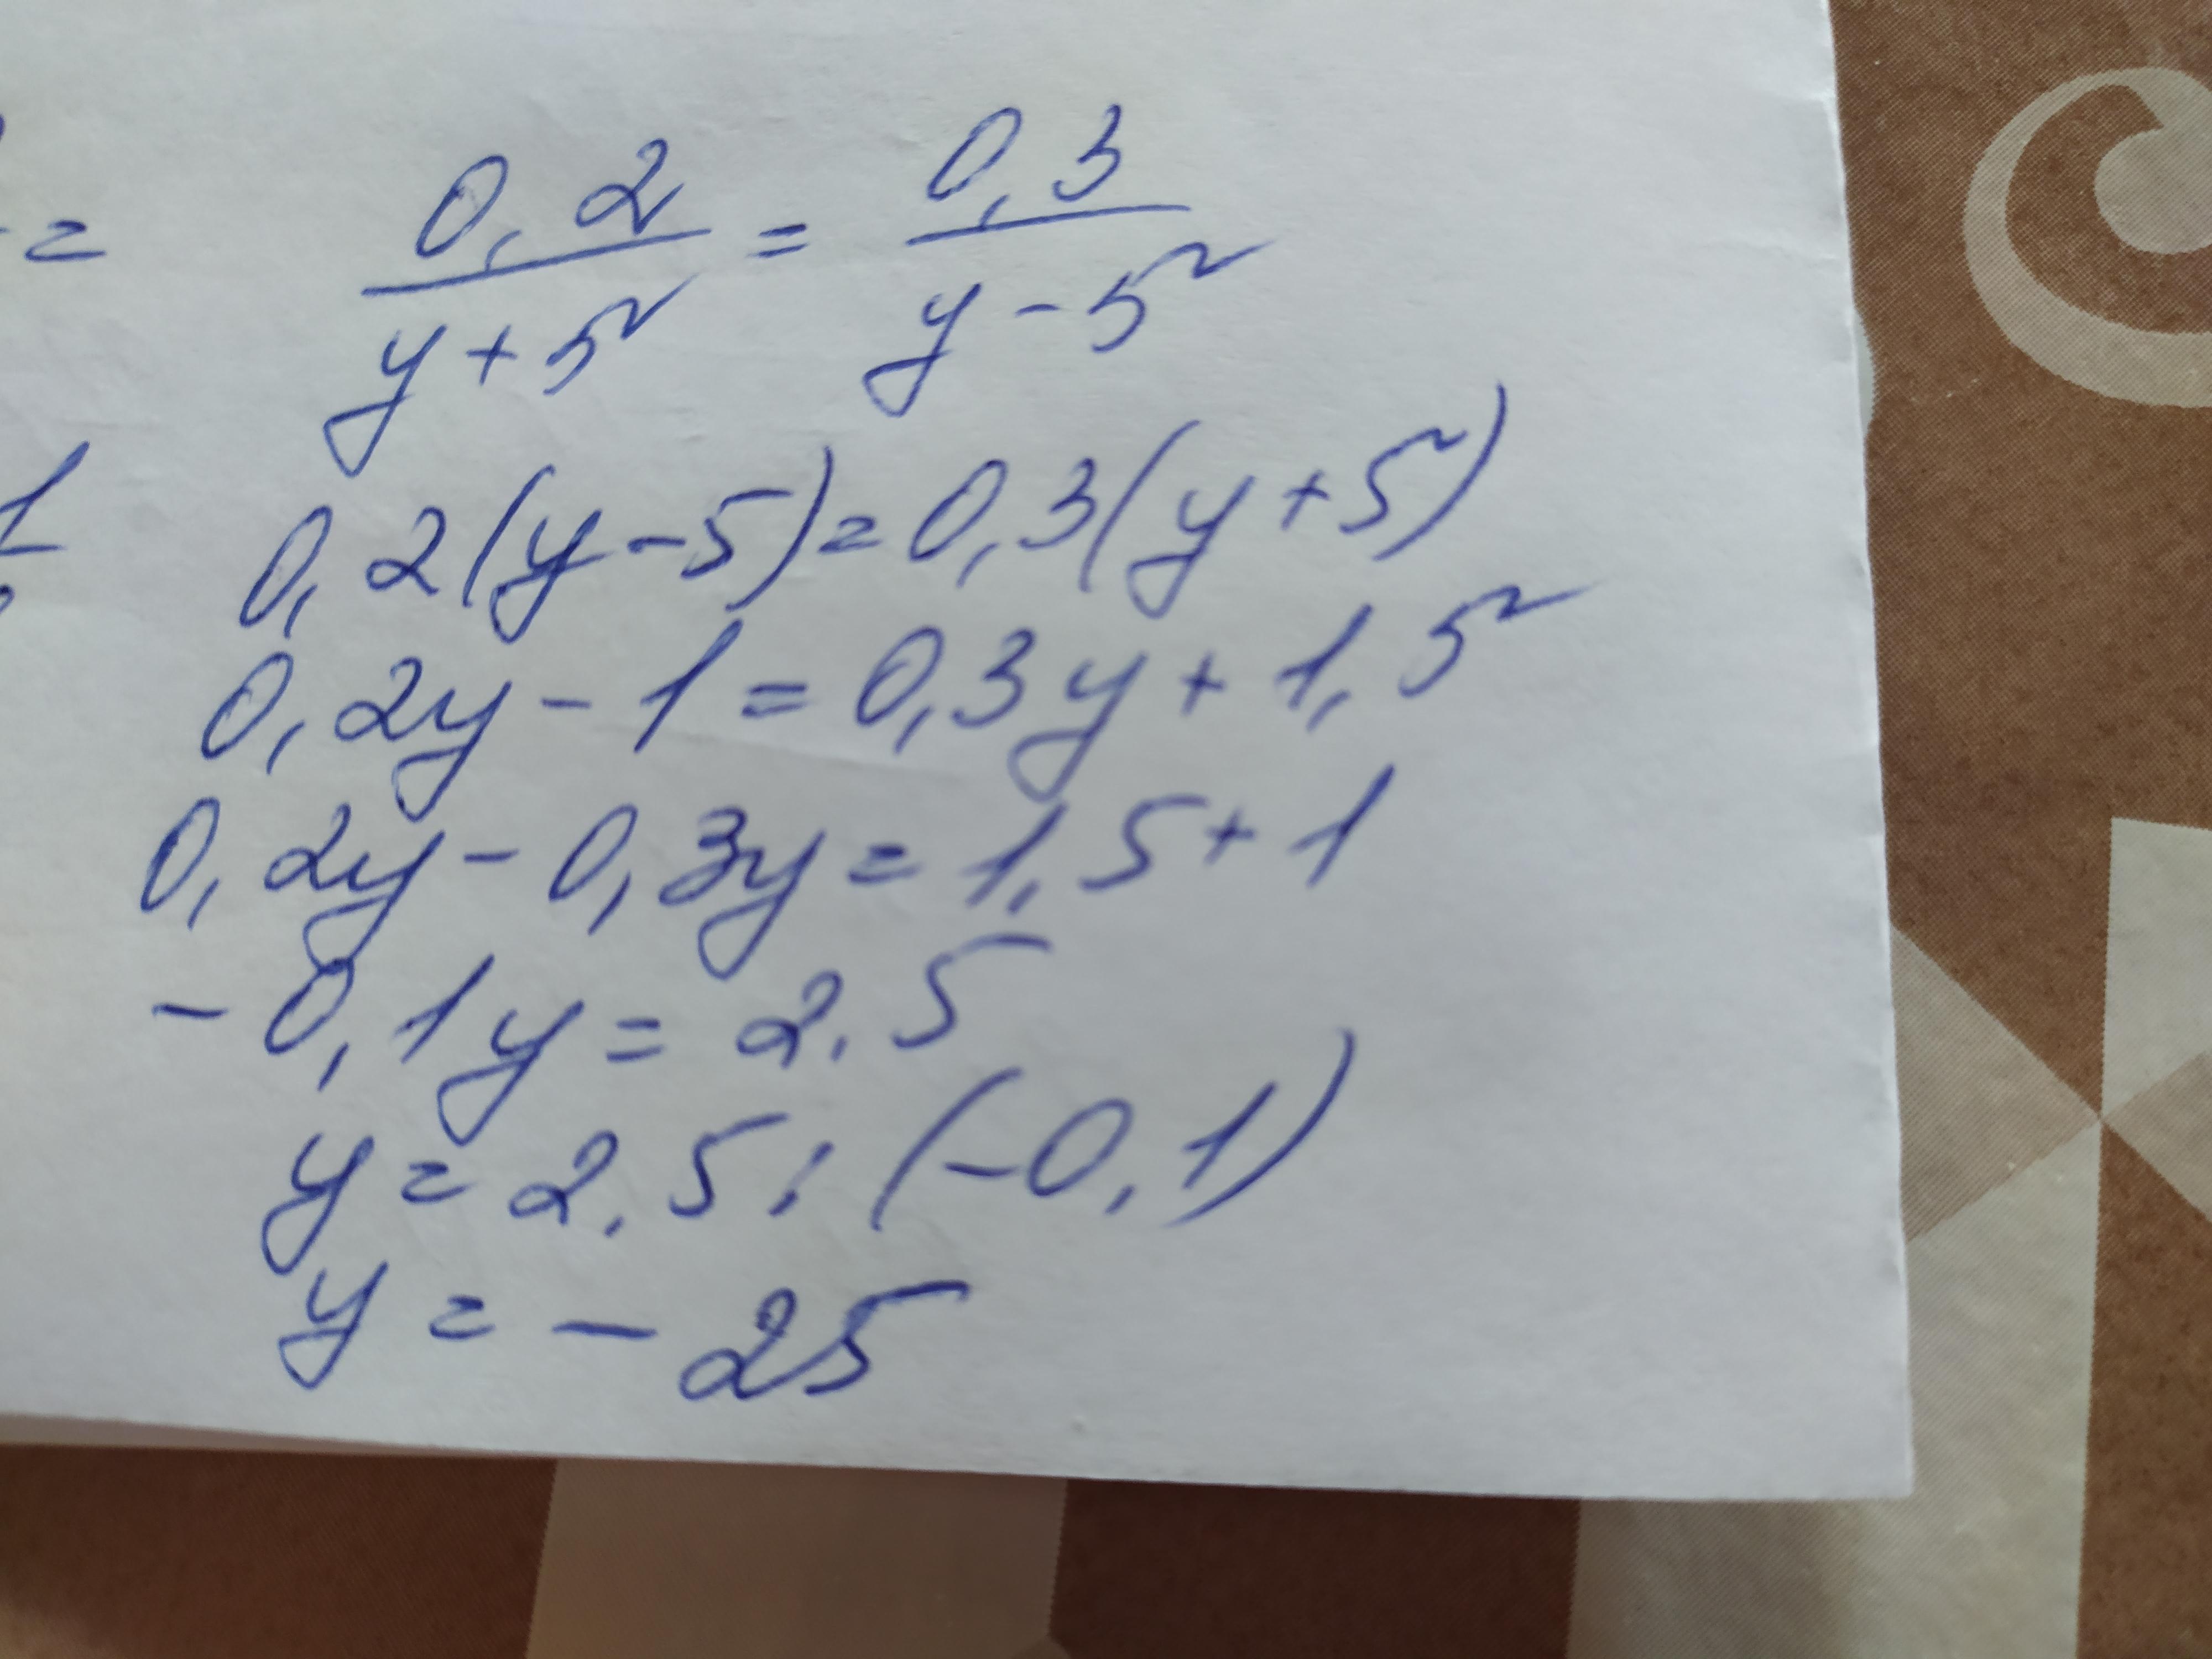 =
0,2/y+5 = 0,3/y-5
1
0,2(y-5)=0,3(y+5)
0,2y-1=0,3y+1,5
0,2y-0,3y=1,5+1
-0,1y=2.5
y=2.5:(-0,1)
y=-25